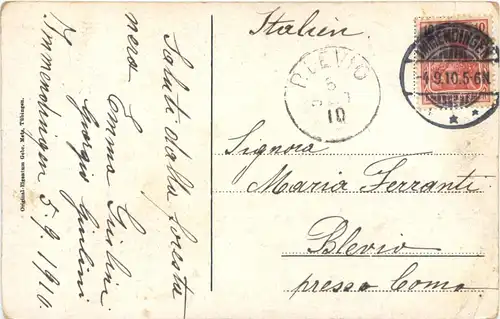 Italien.
10 10
IMMENDINGEN
4.9.10.5-6N
BLEVIO
5
10
Signora
Maria Ferranti
Blevio
presso Como
Saluti dalla foresta
nera
Emma Giulini
Giorgio Giulini
Immendingen 5/9.1910.
Original-Eigentum Gebr. Metz, Tübingen.